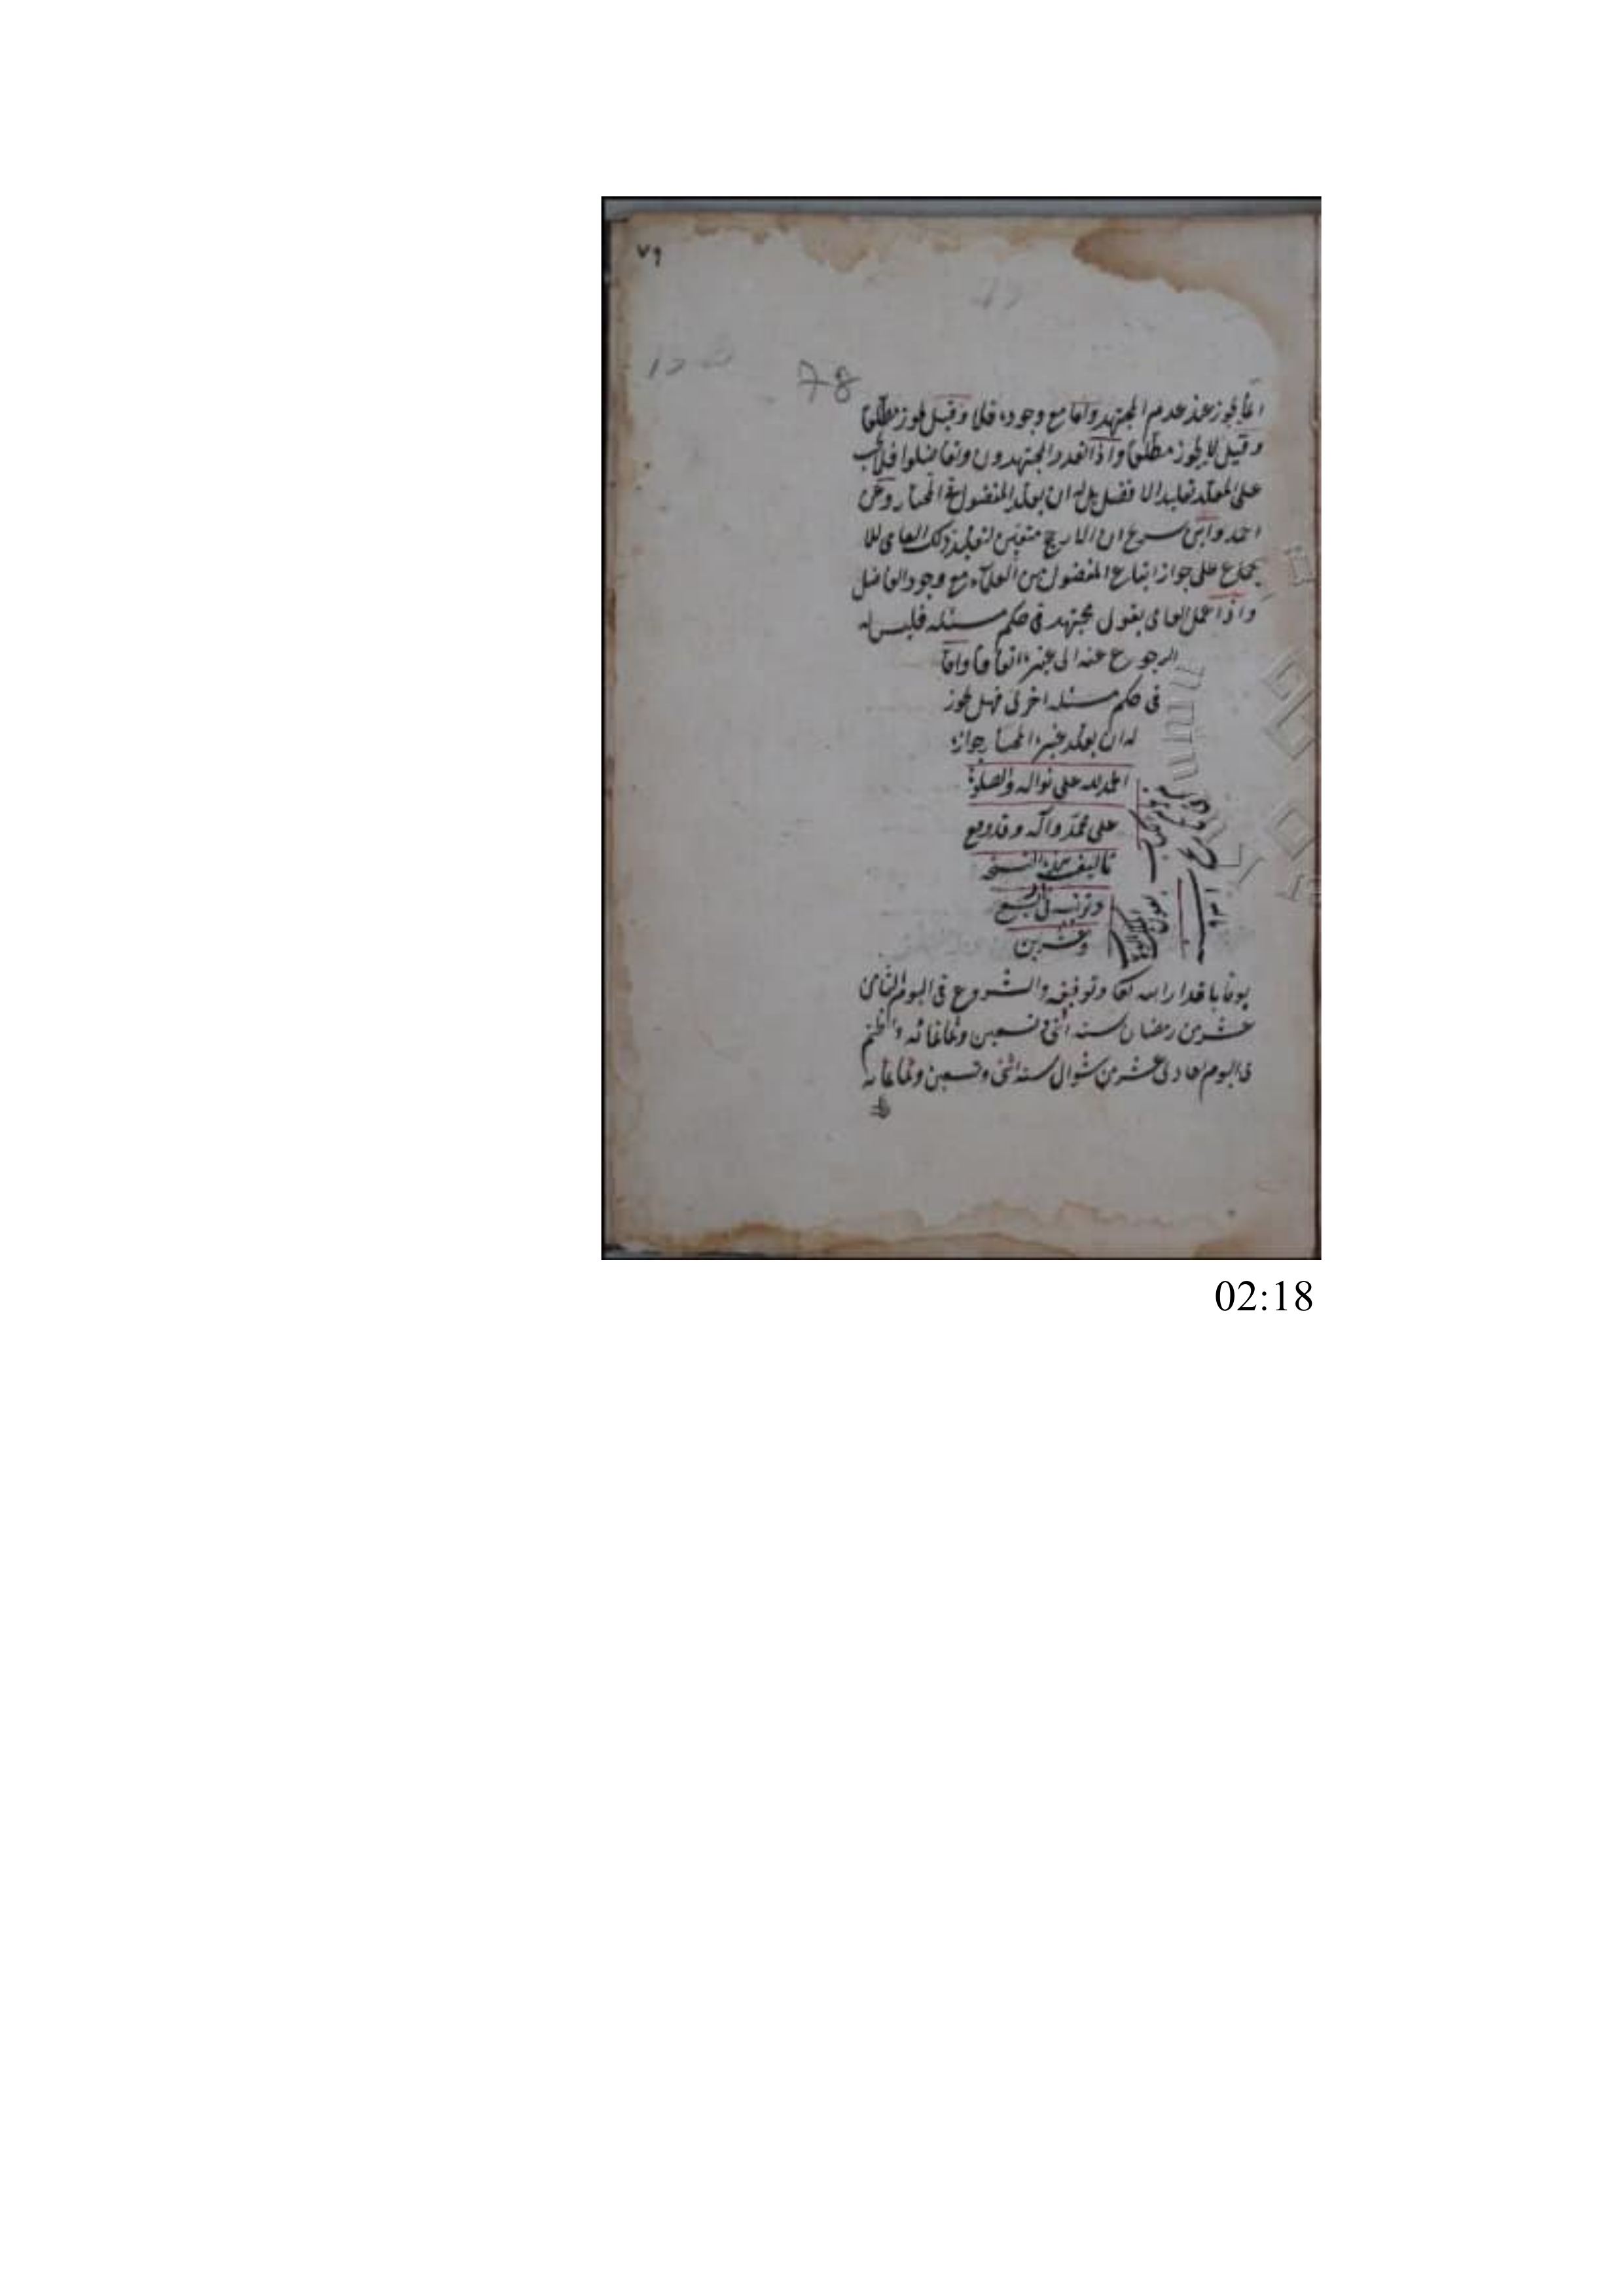 ٧٩
78
انما يجوز عند عدم المجتهد واما مع وجوده فلا وقيل يجوز مطلقا
وقيل لا يجوز مطلقا واذا تعدد المجتهدون وتفاضلوا فلا يجب
على المقلد تقليد الافضل بل له ان يقلد المفضول في المختار وعن
احمد وابن سريج ان الارجح متعين لتقليد ذلك العامي للا
جماع على جواز اتباع المفضول من العلماء مع وجود الفاضل
واذا عمل العامي بقول مجتهد في حكم مسئلة فليس له
الرجوع عنه الى غيره اتفاقا واما
في حكم مسئلة اخرى فهل يجوز
له ان يقلد غيره المختار جوازه
الحمد لله على نواله والصلوة
على محمد وآله وقد وقع
تاليف هذه النسخة
وترتيبه في اربع
وعشرين
يوما باقدار الله تعالى وتوفيقه والشروع في اليوم الثامن
عشر من رمضان سنة اثنى وتسعين وثمانمائه والختم
في اليوم الحادي عشر من شوال سنة اثنى وتسعين وثمانمائه
02:18